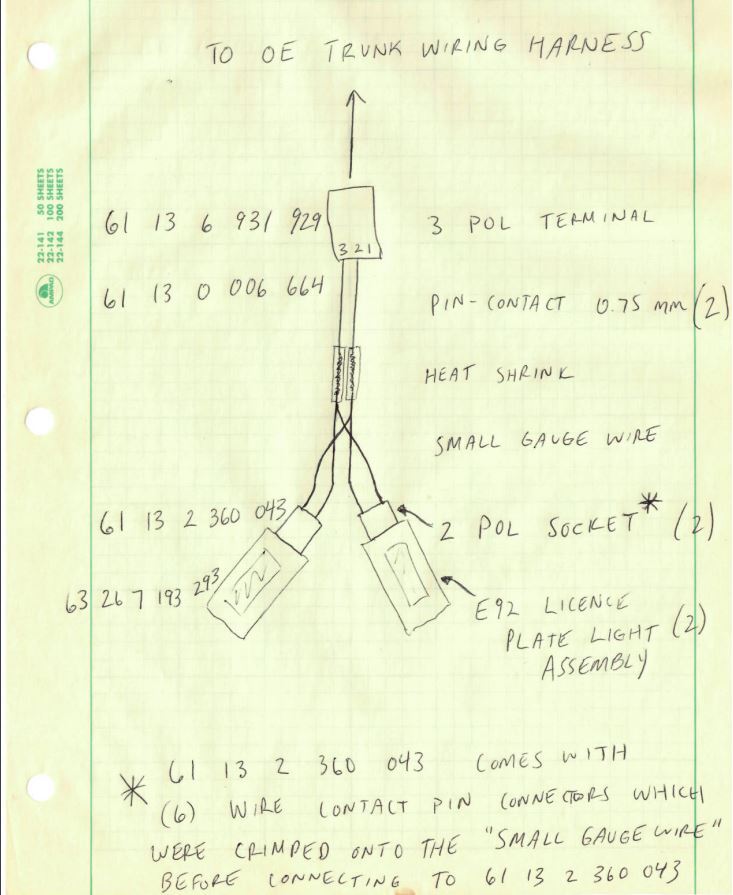 TO OE TRUNK WIRING HARNESS
22-141 50 SHEETS
22-142 100 SHEETS
22-144 200 SHEETS
AMPAD
61 13 6 931 929
3 POL TERMINAL
3 2 1
61 13 0 006 664
PIN-CONTACT 0.75 MM (2)
HEAT SHRINK
SMALL GAUGE WIRE
61 13 2 360 043
2 POL SOCKET* (2)
63 26 7 193 293
E92 LICENCE
PLATE LIGHT (2)
ASSEMBLY
* 61 13 2 360 043 COMES WITH
(6) WIRE CONTACT PIN CONNECTORS WHICH
WERE CRIMPED ONTO THE "SMALL GAUGE WIRE"
BEFORE CONNECTING TO 61 13 2 360 043